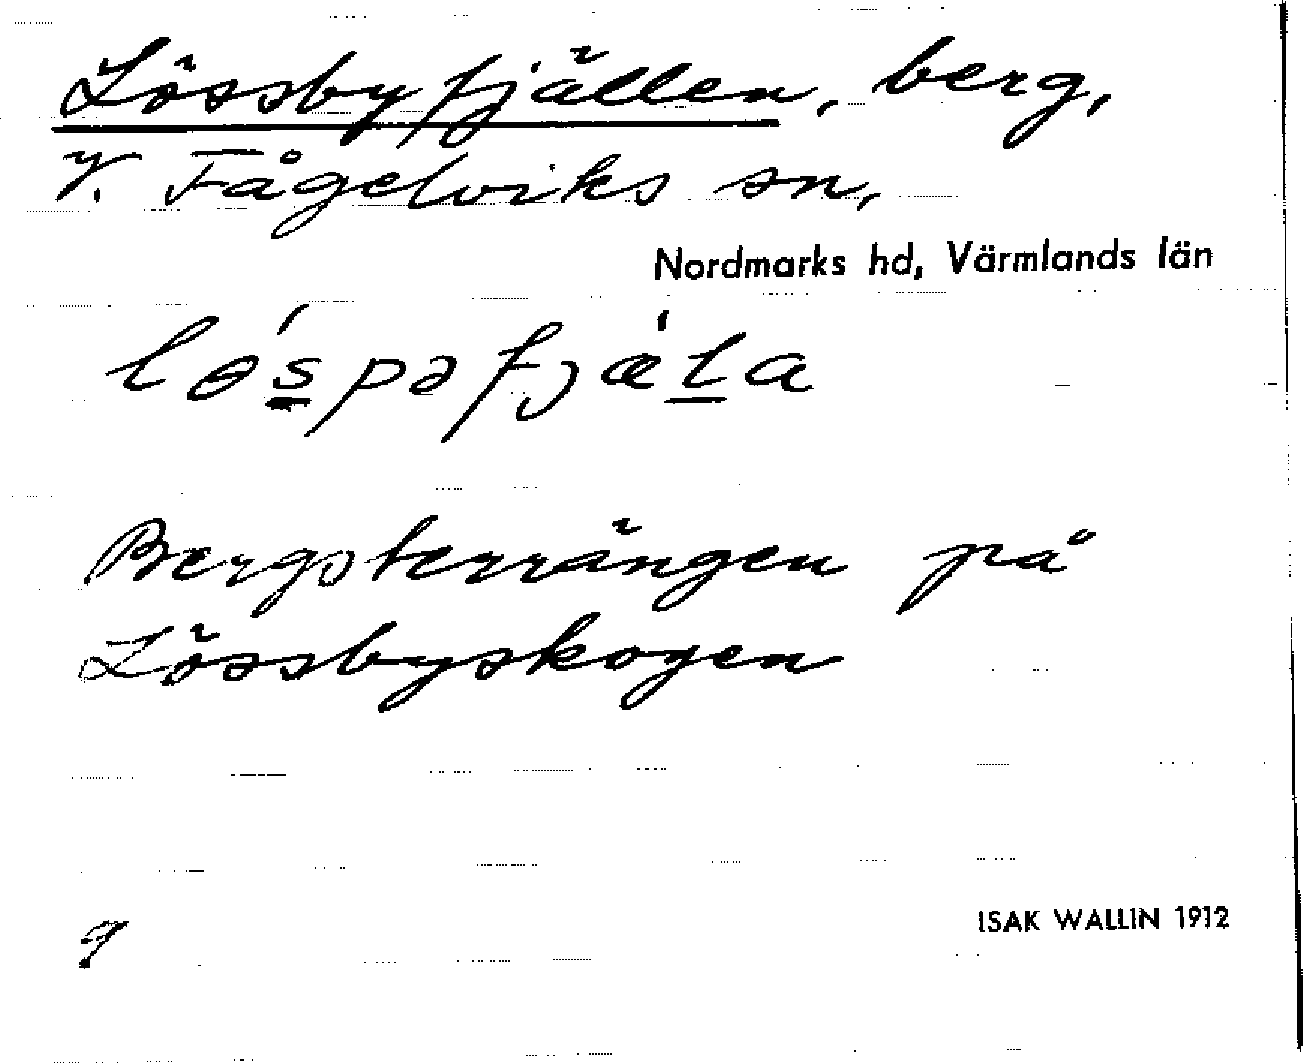 Lössbyfjällen, berg,
V. Fågelviks sn,
Nordmarks hd, Värmlands län
lɵ́s̲pəfjæ̀l̲a
Bergsterrängen på
Lössbyskogen
9
ISAK WALLIN 1912